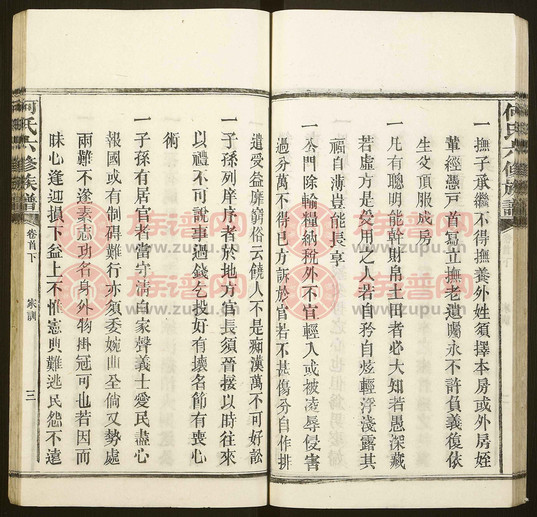 何氏六修族譜
一撫子承繼不得撫養外姓須擇本房或外房姪
輩經憑戸首寫立撫老遺囑永不許負義復依
生父頂服成房
一凡有聰明能幹財帛土田者必大知若愚深藏
若虛方是受用之人若自矜自炫輕浮淺露其
福自薄豈能長享
一本門除輸糧納稅外不官輕人或被凌辱侵害
過分萬不得已方訴於官若不甚傷分自作排
遣受益靡窮俗云饒人不是痴漢萬不可好訟
一子孫列庠序者於地方官長須晉接以時往來
以禮不可說事過錢乞投好有壞名節有喪心
術
一子孫有居官者當守清白家聲義士愛民盡心
報國或有制碍難行亦須委婉曲全倘又勢處
兩難不逢素志功名身外物掛冠可也若因而
昧心逢迎損下益上不惟憲典難逃民怨不遠
何氏六修族譜
卷首下
家訓
三
族譜网
www.zupu.cn